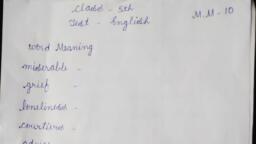 Class - 5th
Test - English
M.M - 10
Word Meaning
miserable -
grief -
loneliness -
courtiers -